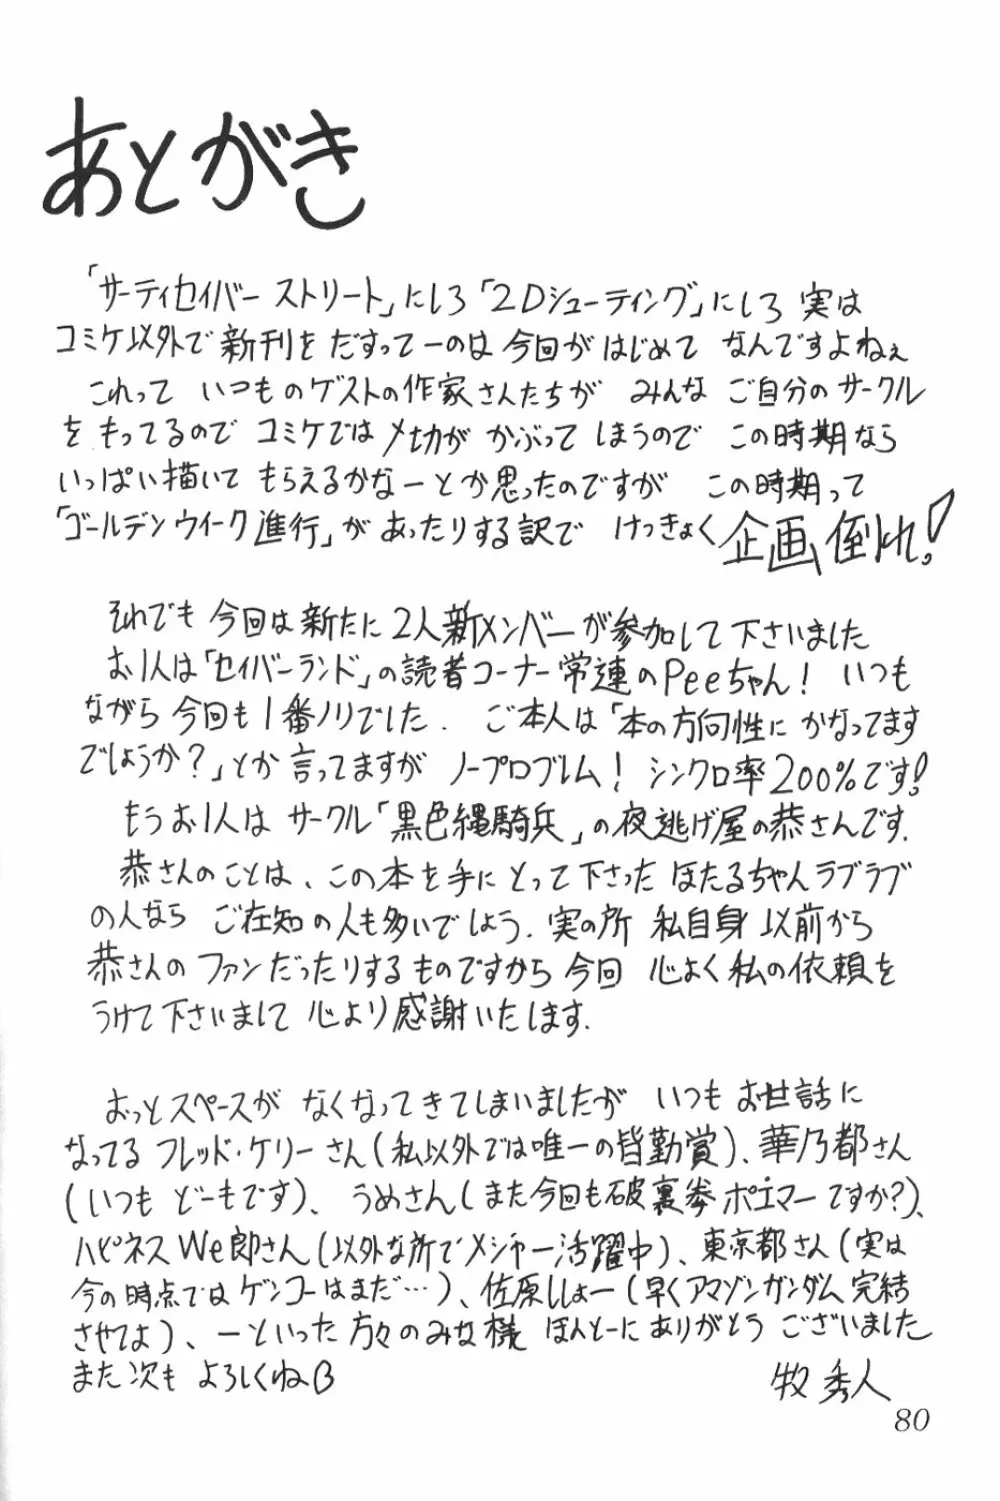 あとがき
「サーティセイバーストリート」にしろ「2Dシューティング」にしろ 実は
コミケ以外で新刊をだすってーのは今回がはじめて なんですよねぇ
これって いつものゲストの作家さんたちが みんな ご自分のサークル
をもってるので コミケでは〆切が かぶって しまうので この時期なら
いっぱい描いて もらえるかなーとか思ったのですが この時期って
「ゴールデンウイーク進行」が あったりする訳で けっきょく企画倒れ!
それでも今回は新たに2人新メンバーが参加して下さいました
お1人は「セイバーランド」の読者コーナー常連のPeeちゃん! いつも
ながら今回も1番ノリでした. ご本人は「本の方向性に かなってます
でしょうか?」とか言ってますが ノープロブレム! シンクロ率200%です!
もうお1人は サークル「黒色縄騎兵」の夜逃げ屋の恭さんです.
恭さんのことは、この本を手にとって下さった ほたるちゃんラブラブ
の人なら ご存知の人も多いでしょう. 実の所 私自身以前から
恭さんの ファンだったりするものですから今回 心よく私の依頼を
うけて下さいまして 心より感謝いたします.
おっとスペースが なくなってきてしまいましたが いつも お世話に
なってる フレッド・ケリーさん(私以外では唯一の皆勤賞)、華乃都さん
(いつも どーもです)、うめさん(また今回も破裏拳ポエマーですか?)、
ハピネスWe郎さん(以外な所でメジャー活躍中)、東京都さん(実は
今の時点ではゲンコーはまだ…)、佐原ししょー(早くアマゾンガンダム完結
させてよ)、ーといった方々のみな様 ほんとーにありがとう ございました
また次も よろしくね
牧 秀人
80